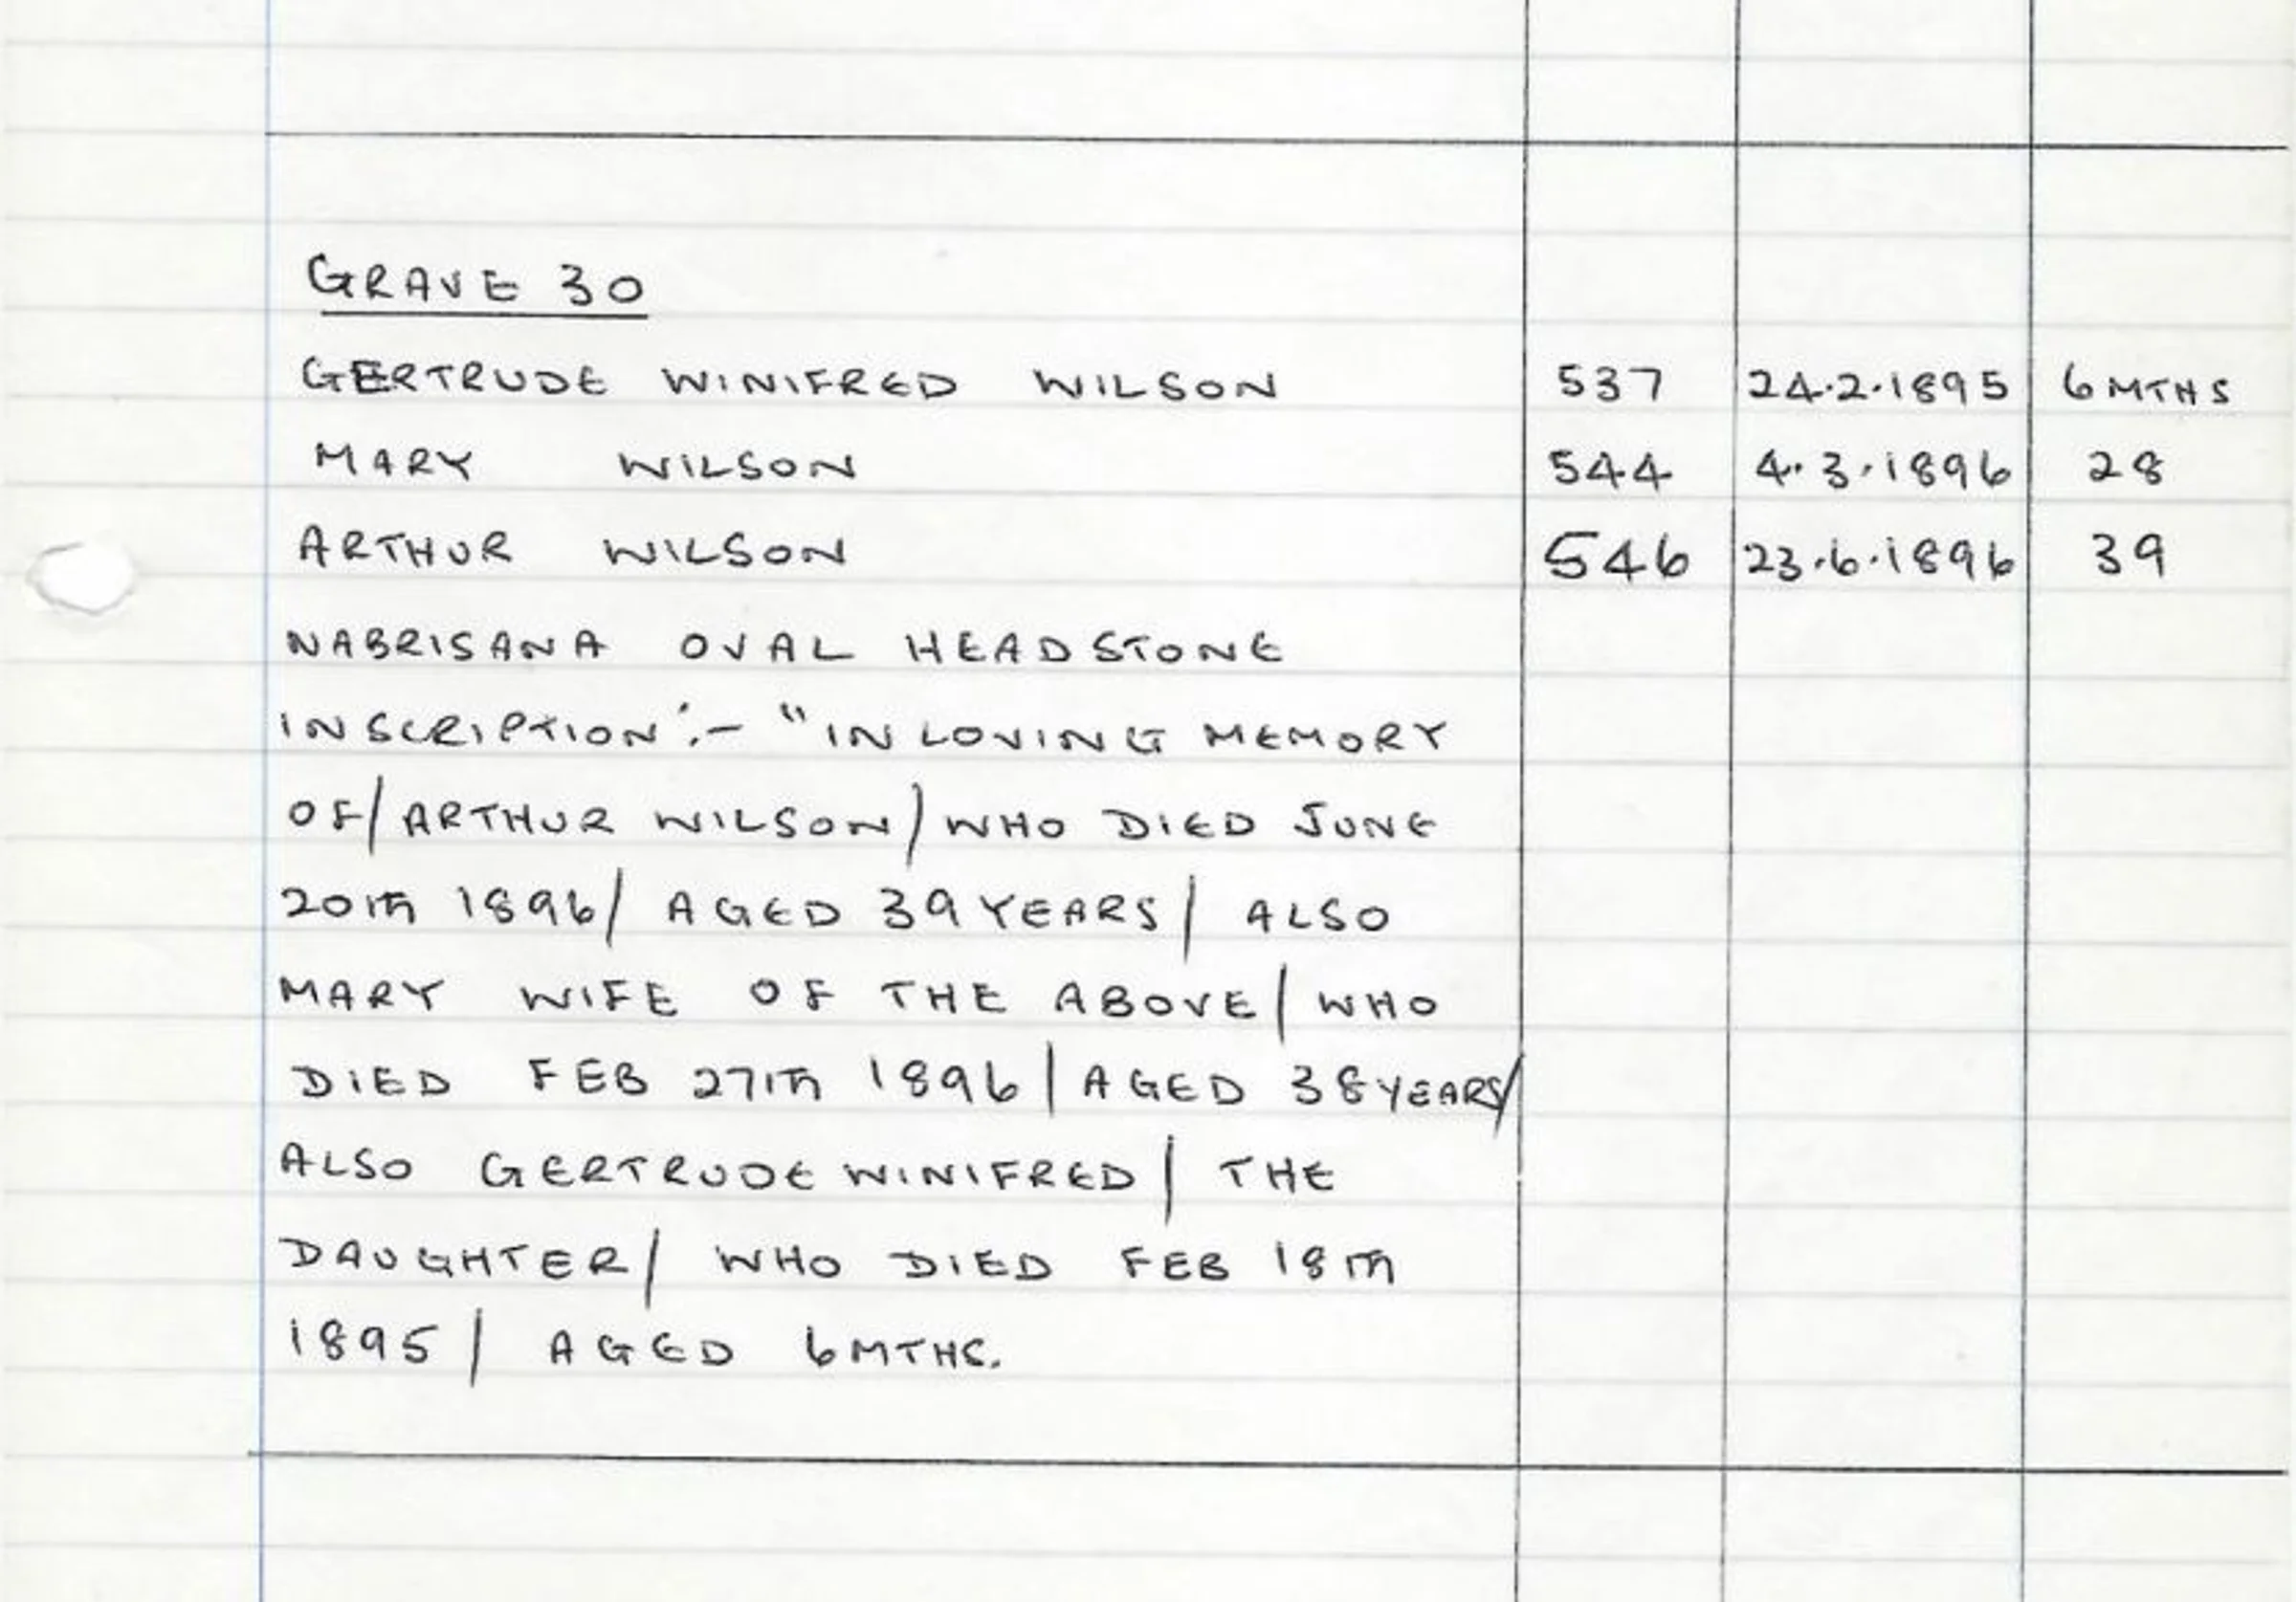 GRAVE 30
GERTRUDE WINIFRED WILSON 537 24.2.1895 6 MTHS
MARY WILSON 544 4.3.1896 28
ARTHUR WILSON 546 23.6.1896 39
NABRISANA OVAL HEADSTONE
INSCRIPTION :- "IN LOVING MEMORY
OF/ARTHUR WILSON/WHO DIED JUNE
20TH 1896/ AGED 39 YEARS/ ALSO
MARY WIFE OF THE ABOVE/WHO
DIED FEB 27TH 1896/AGED 38 YEARS/
ALSO GERTRUDE WINIFRED/ THE
DAUGHTER/ WHO DIED FEB 18TH
1895/ AGED 6 MTHS.